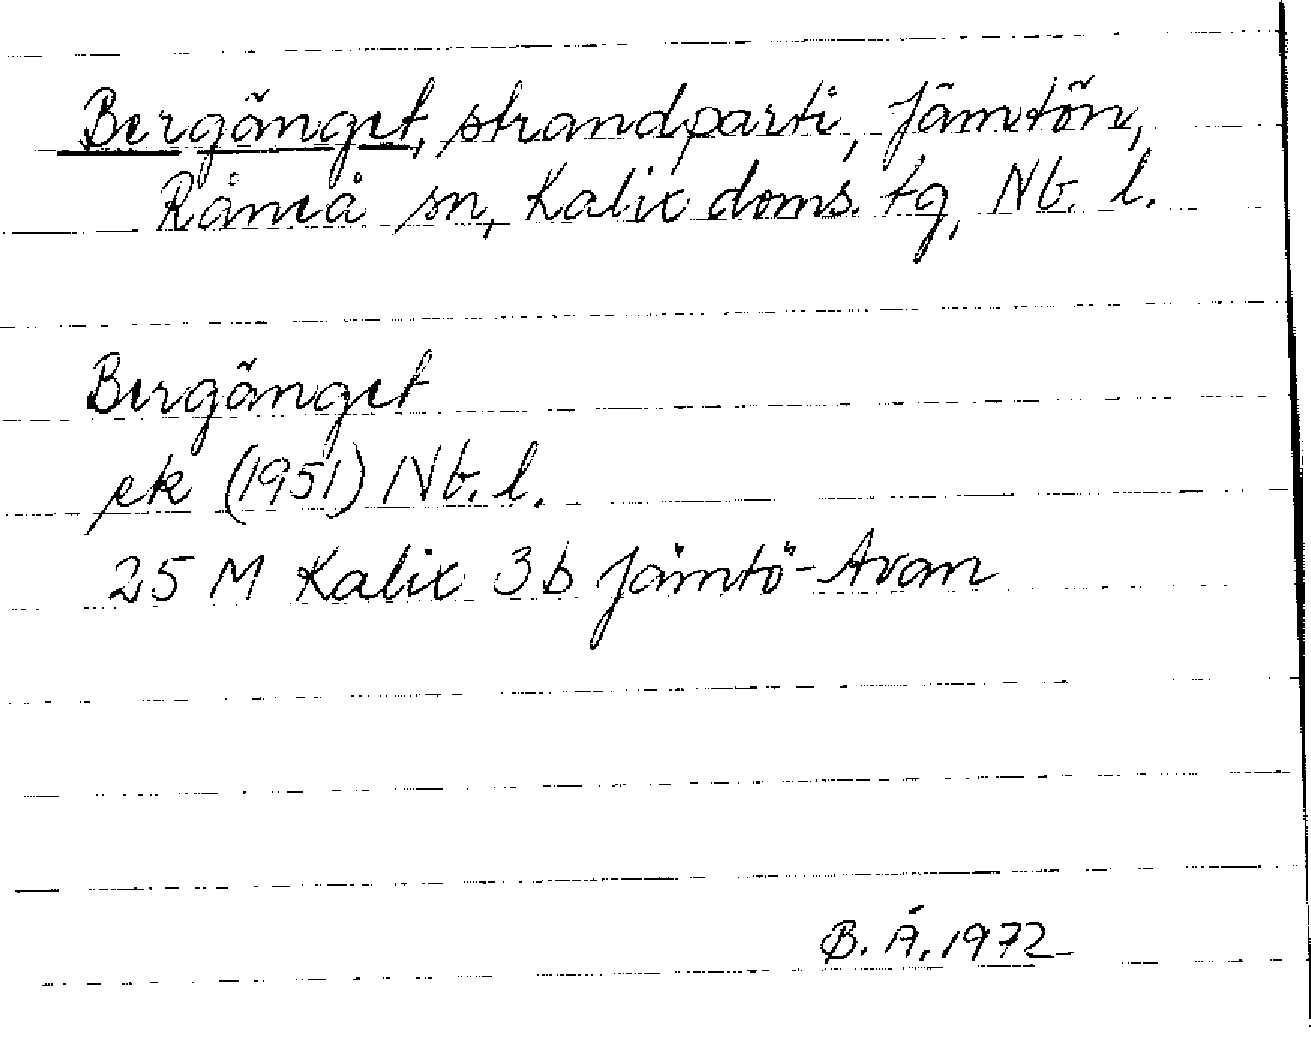 Bergänget, strandparti, Jämtön,
Råneå sn, Kalix doms. tg, Nb. l.
Bergänget
ek (1951) Nb. l.
25 M Kalix 3b Jämtö-Avan
B. Å. 1972